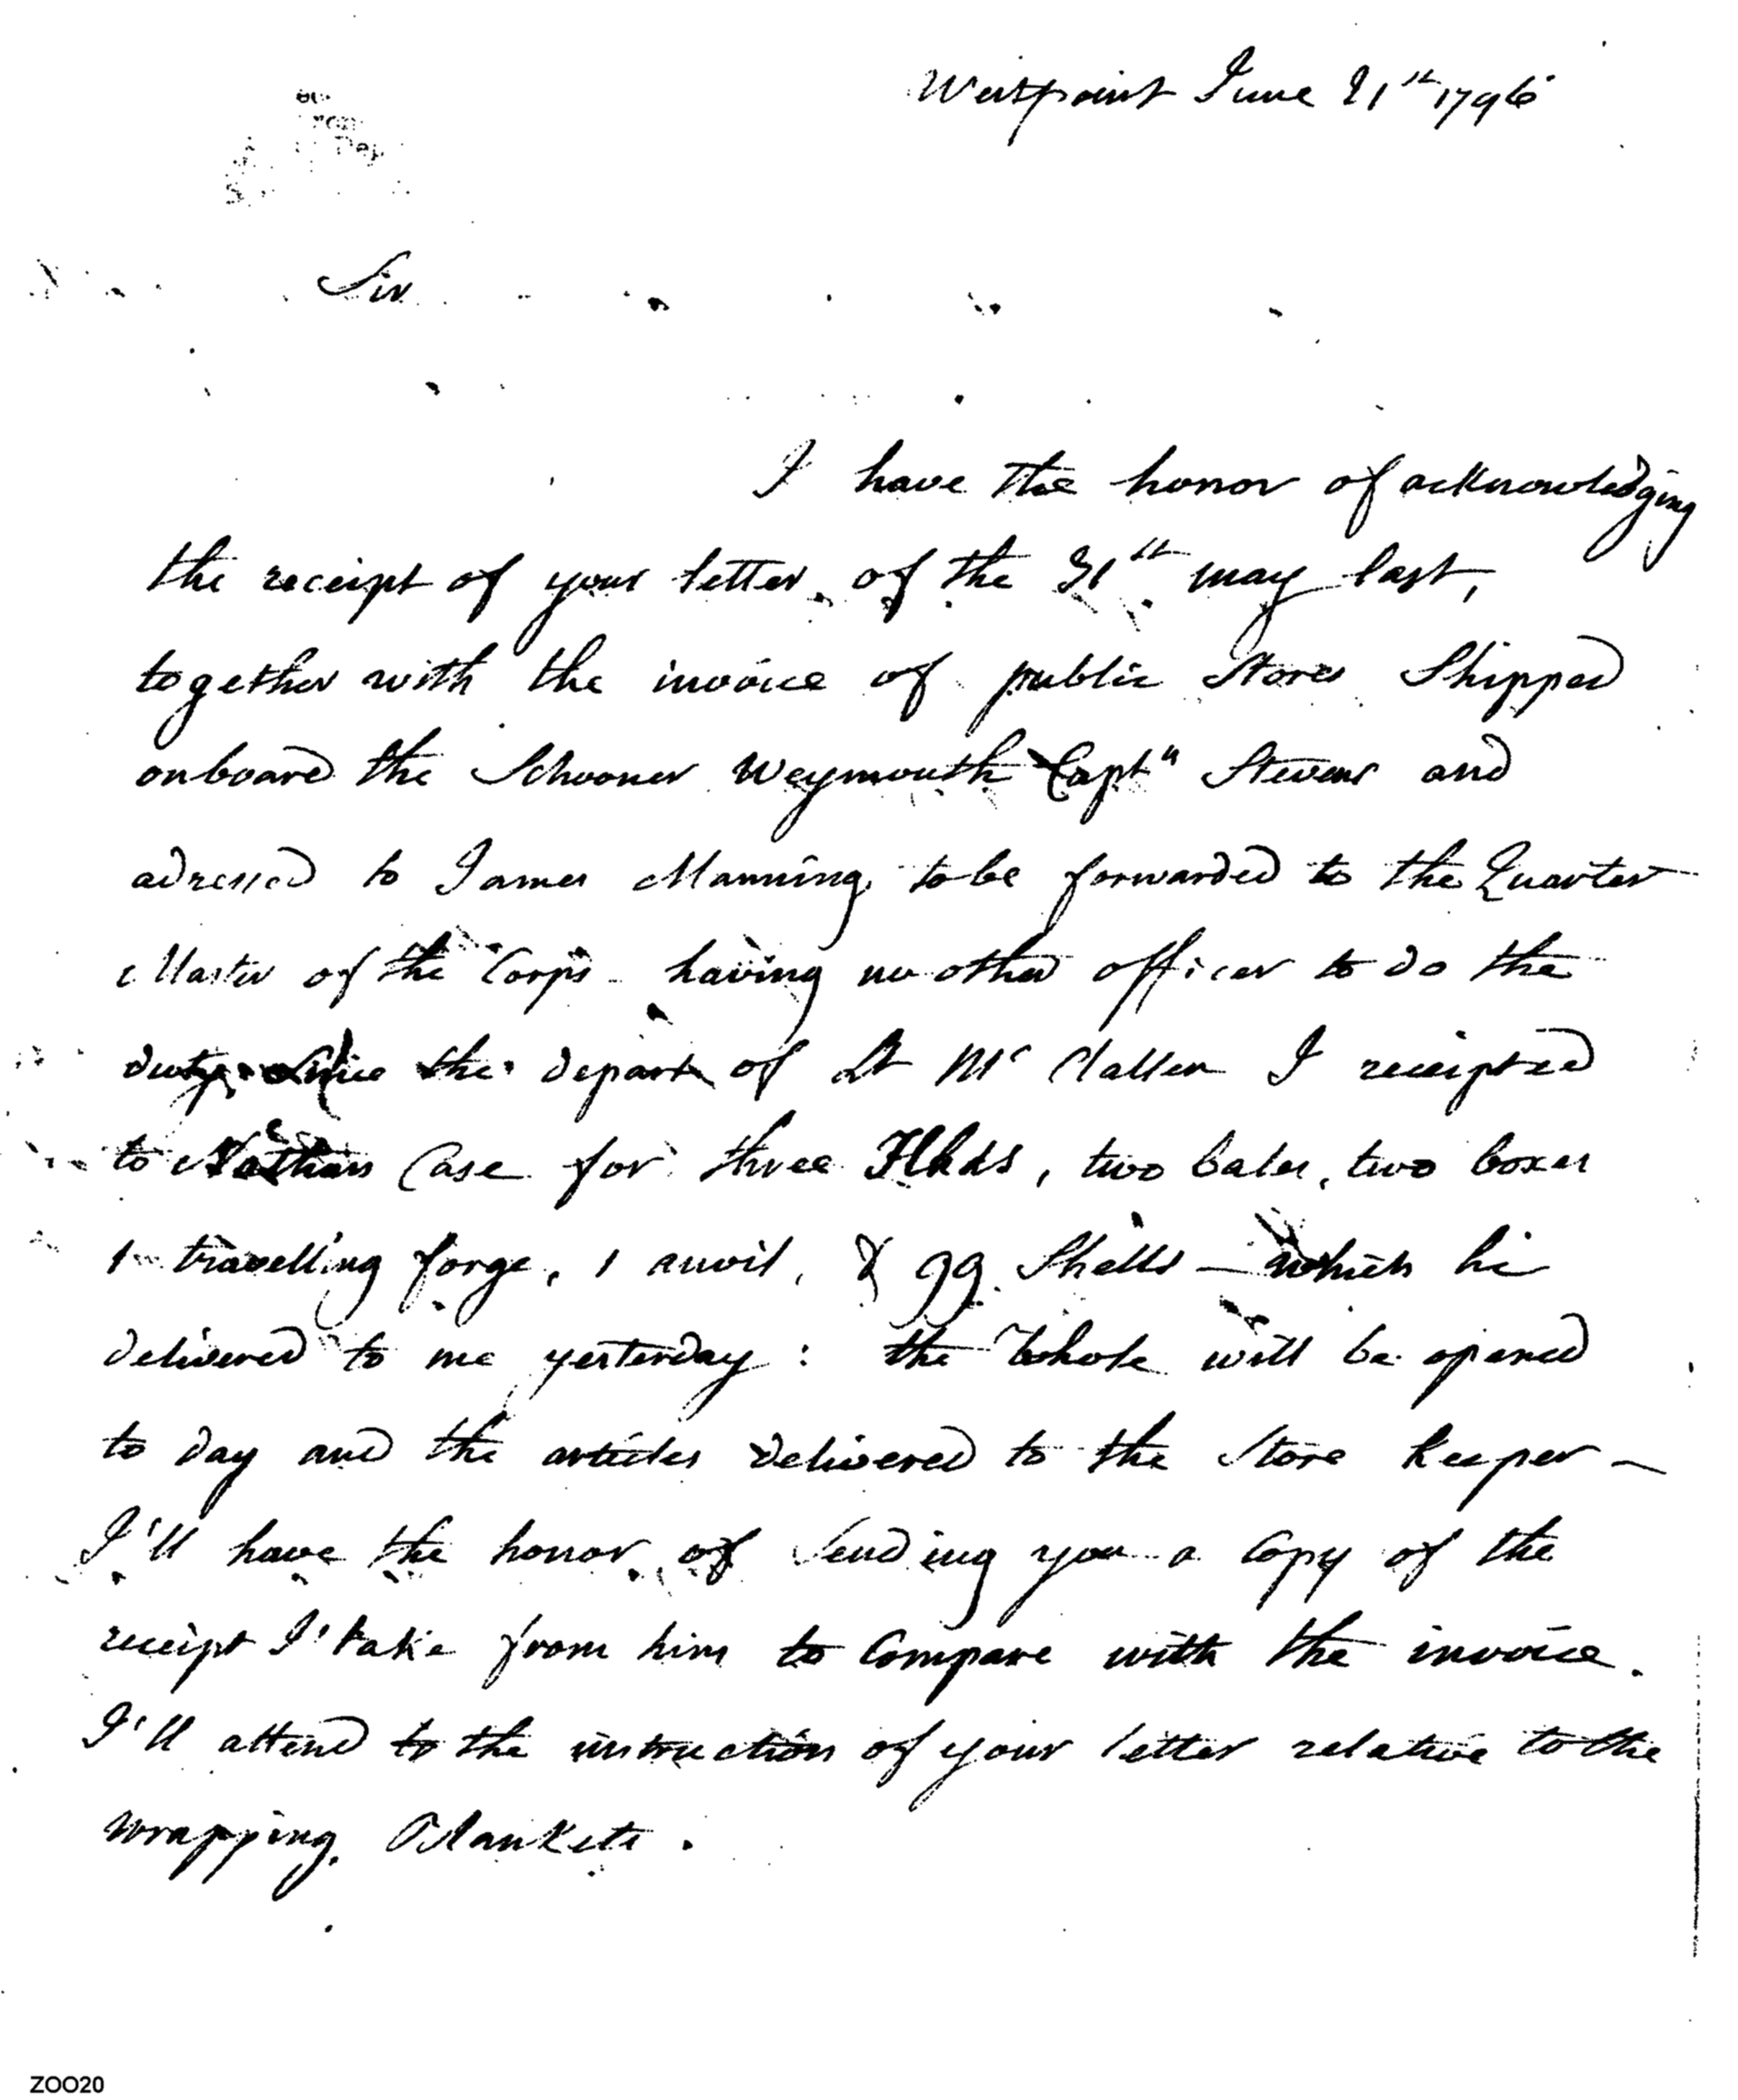 Westpoint June 21st 1796
Sir
I have the honor of acknowledging
the receipt of your letter of the 31st may last,
together with the invoice of public Stores Shipped
onboard the Schooner Weymouth Captn Stevens and
adressed to James Manning, to be forwarded to the Quarter
Master of the Corps having no other officer to do the
duty since the depart of Lt Mc Clallen I receipted
to Nathan Case for three Hhds, two bales, two boxes
1 travelling forge, 1 anvil, & 99 Shells — which he
delivered to me yesterday : the Whole will be opened
to day and the articles delivered to the Store Keeper —
I'll have the honor of Sending you a Copy of the
receipt I take from him to Compare with the invoice.
I'll attend to the instruction of your letter relative to the
wrapping Blankets.
ZOO20